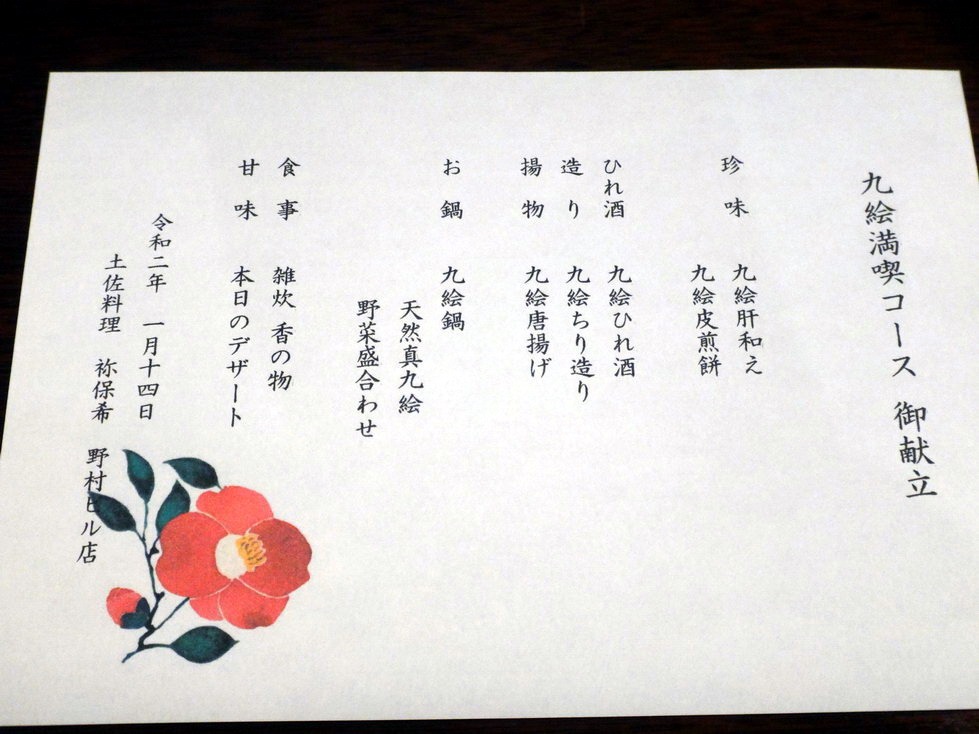 九絵満喫コース 御献立
珍味 九絵肝和え
九絵皮煎餅
ひれ酒 九絵ひれ酒
造り 九絵ちり造り
揚物 九絵唐揚げ
お鍋 九絵鍋
天然真九絵
野菜盛合わせ
食事 雑炊 香の物
甘味 本日のデザート
令和二年 一月十四日
土佐料理 祢保希 野村ビル店